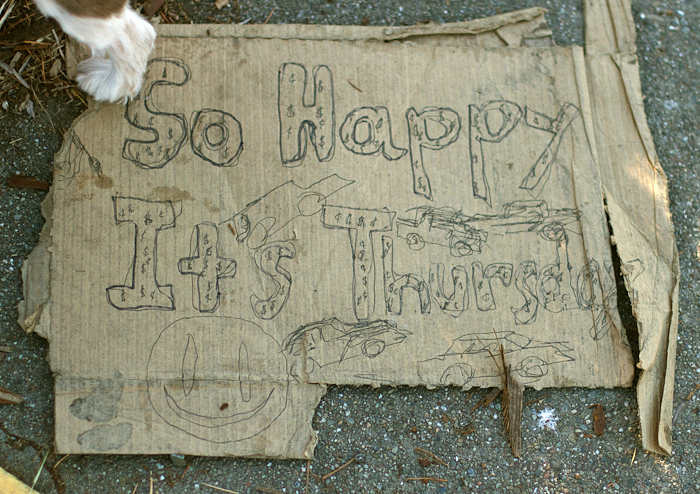 So Happy
It's Thursday